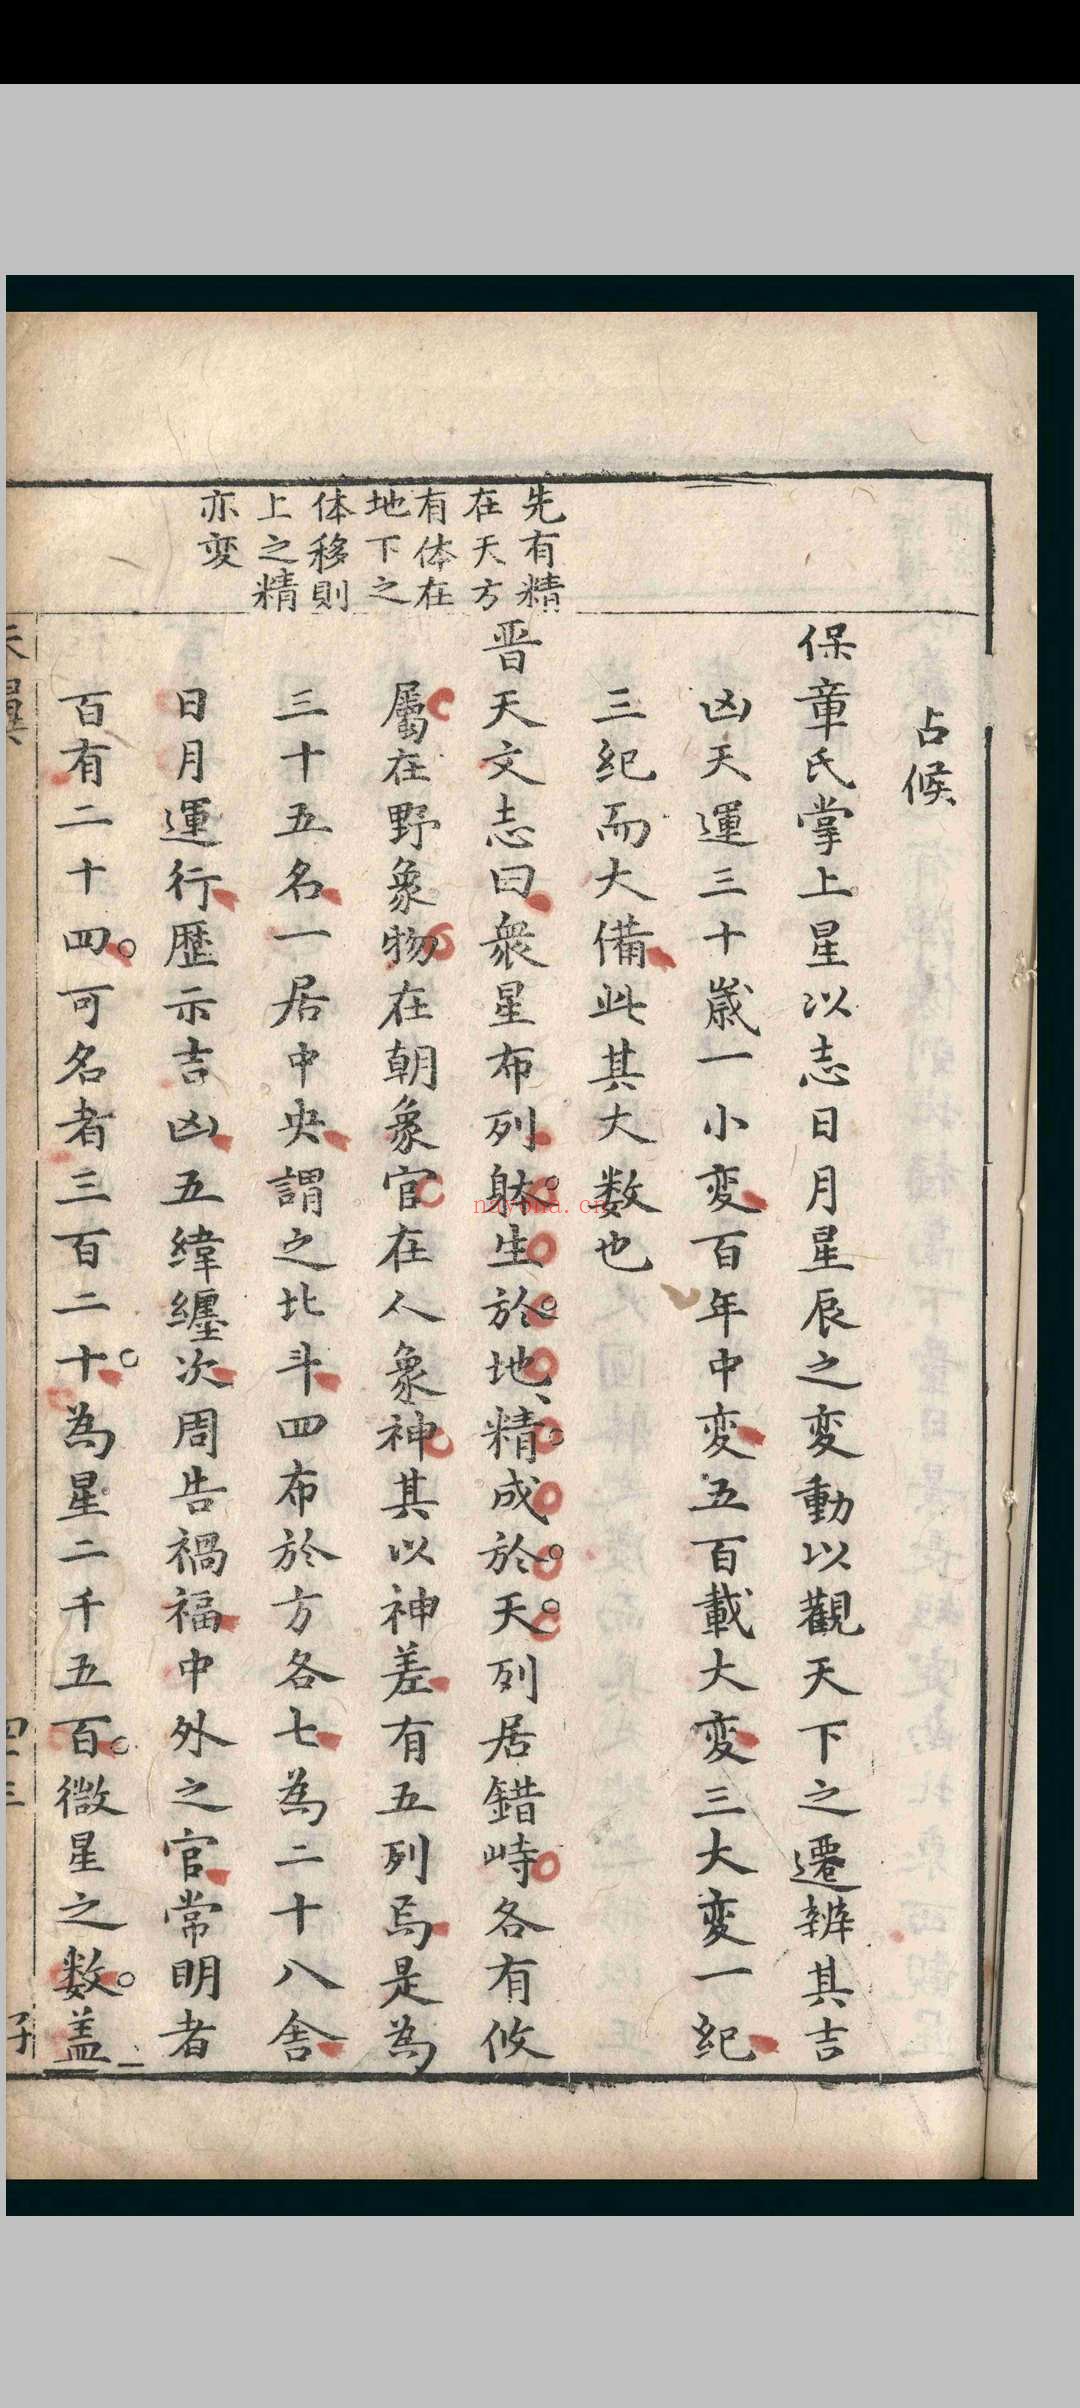 占候
保章氏掌上星以志日月星辰之変動以觀天下之遷辨其吉
凶天運三十歲一小変百年中変五百載大変三大変一紀
三紀而大備此其大数也
先有精
在天方
有体在
地下之
体移則
上之精
亦変
晋天文志曰衆星布列躰生於地、精成於天列居錯峙各有攸
屬在野象物在朝象官在人象神其以神差有五列焉是為
三十五名一居中央謂之北斗四布於方各七為二十八舍
日月運行歴示吉凶五緯纏次周告禍福中外之官常明者
百有二十四。可名者三百二十。為星二千五百。微星之数。盖
四十三
子